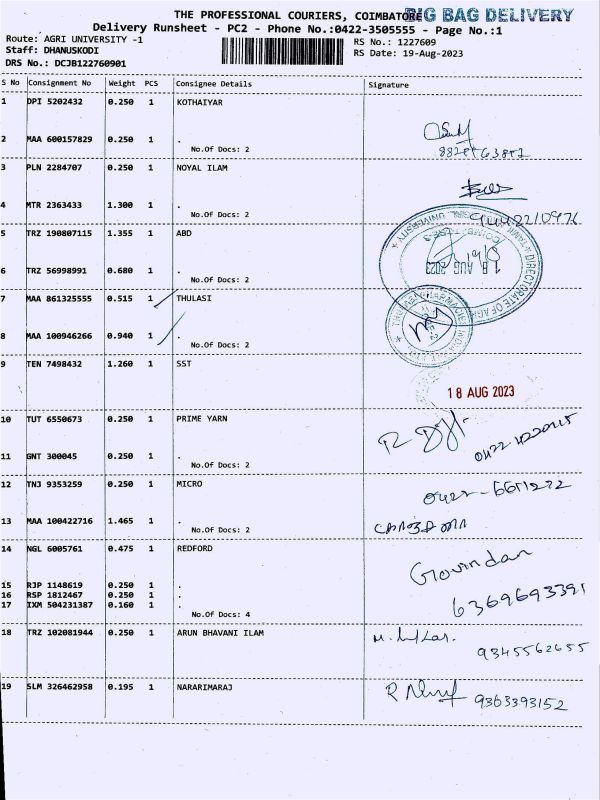 THE PROFESSIONAL COURIERS, COIMBATORE BIG BAG DELIVERY
Delivery Runsheet - PC2 - Phone No.:0422-3505555 - Page No.:1
Route: AGRI UNIVERSITY -1 RS No.: 1227609
Staff: DHANUSKODI RS Date: 19-Aug-2023
DRS No.: DCJB122760901
S No Consignment No Weight PCS Consignee Details Signature
1 DPI 5202432 0.250 1 KOTHAIYAR
2 MAA 600157829 0.250 1 .
No.Of Docs: 2
3 PLN 2284707 0.250 1 NOYAL ILAM
4 MTR 2363433 1.300 1 .
No.Of Docs: 2
5 TRZ 190807115 1.355 1 ABD
6 TRZ 56998991 0.680 1 .
No.Of Docs: 2
18 AUG 2023
7 MAA 861325555 0.515 1 THULASI
8 MAA 100946266 0.940 1 .
No.Of Docs: 2
9 TEN 7498432 1.260 1 SST
18 AUG 2023
10 TUT 6550673 0.250 1 PRIME YARN
11 GNT 300045 0.250 1 .
No.Of Docs: 2
12 TNJ 9353259 0.250 1 MICRO
13 MAA 100422716 1.465 1 .
No.Of Docs: 2
14 NGL 6005761 0.475 1 REDFORD
Govindan
15 RJP 1148619 0.250 1 .
16 RSP 1812467 0.250 1 .
17 IXM 504231387 0.160 1 .
6369693391
No.Of Docs: 4
18 TRZ 102081944 0.250 1 ARUN BHAVANI ILAM
9345562655
19 SLM 326462958 0.195 1 NARARIMARAJ
9363393152